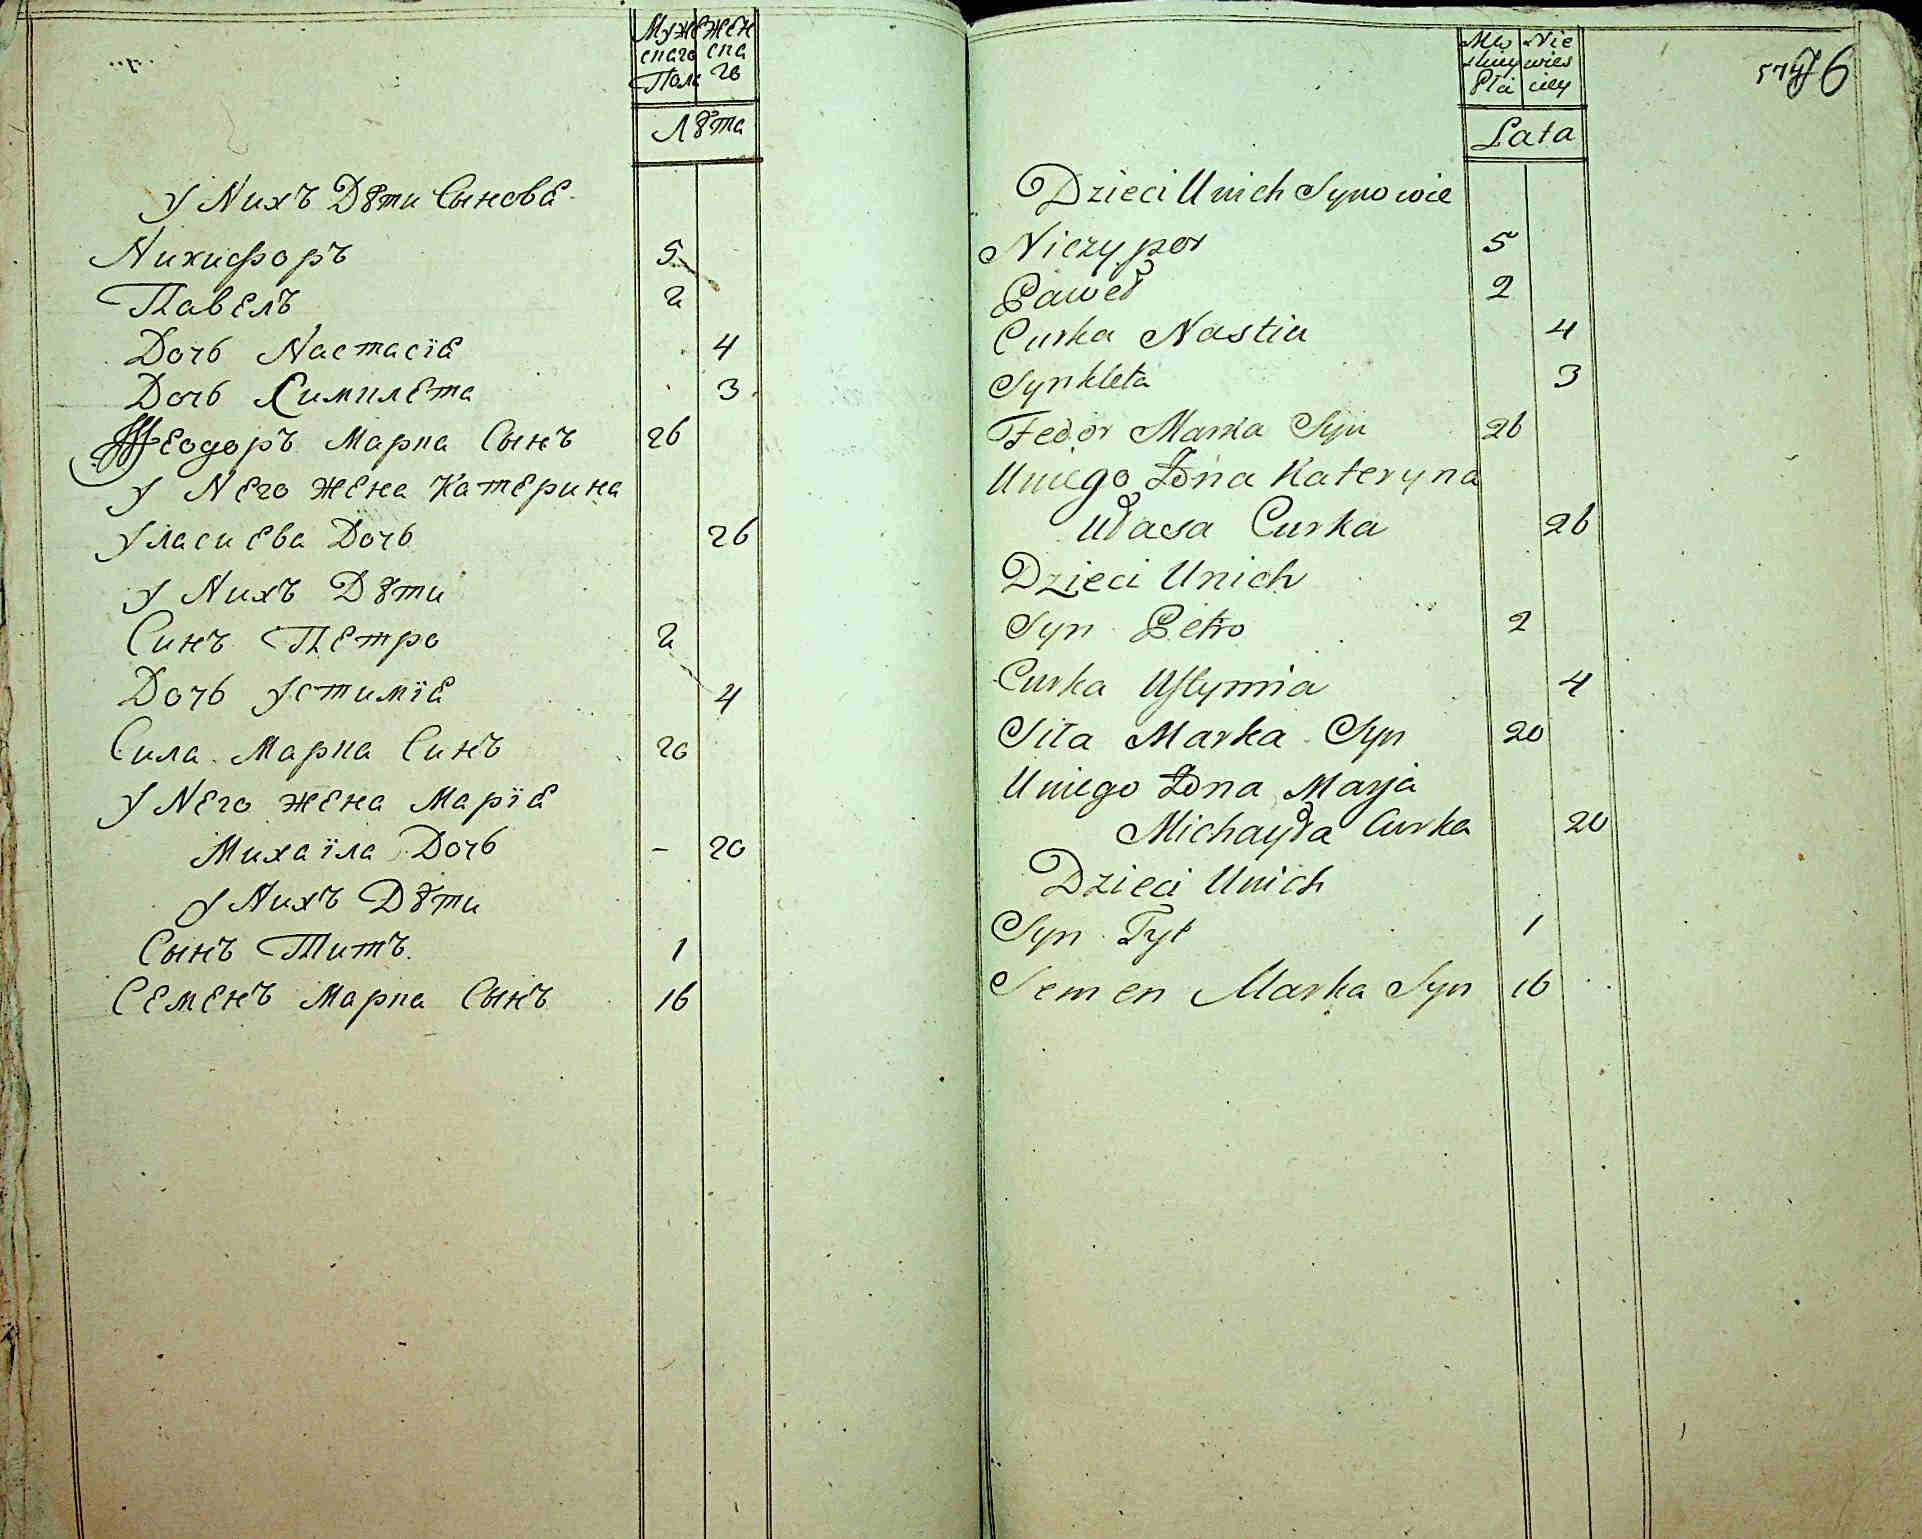 Муже жен
скаго ска
Пола го
Лѣта
У Нихъ Дѣти Сынове
Никифоръ 5
Павелъ 2
Дочь Настасїе 4
Дочь Симклета 3
Феодоръ Марка Сынъ 26
У Него жена Катерина
Уласиева Дочь 26
У Нихъ Дѣти
Синъ Петро 2
Дочь Устимїе 4
Сила Марка Синъ 20
У Него жена Марїе
Михаїла Дочь - 20
У Нихъ Дѣти
Сынъ Титъ 1
Семенъ Марка Сынъ 16
Mę Nie
skiey wies
Płci ciey
Lata
76
Dzieci Unich Synowie
Niczypor 5
Paweł 2
Curka Nastia 4
Synkleta 3
Fedor Marka Syn 26
Uniego Żona Kateryna
Ułasa Curka 26
Dzieci Unich
Syn Petro 2
Curka Ustymia 4
Siła Marka Syn 20
Uniego Żona Marja
Michayła Curka 20
Dzieci Unich
Syn Tyt 1
Semen Marka Syn 16